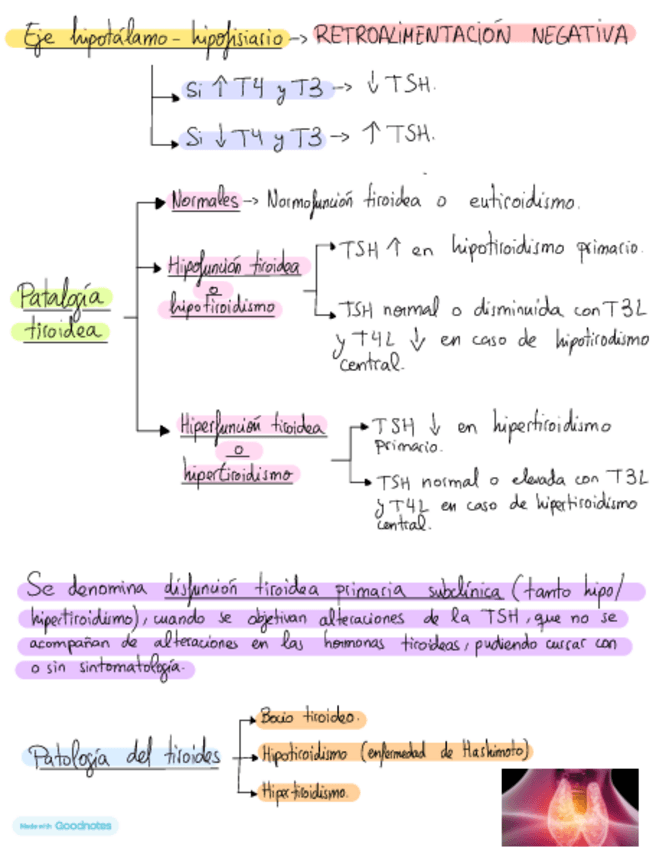 Eje hipotálamo - hipofisiario → RETROALIMENTACIÓN NEGATIVA
Si ↑ T4 y T3 → ↓ TSH.
Si ↓ T4 y T3 → ↑ TSH.
Normales → Normofunción tiroidea o eutiroidismo.
Patalogía
tiroidea
Hipofunción tiroidea
o
hipotiroidismo
TSH ↑ en hipotiroidismo primario.
TSH normal o disminuida con T3L
y T4L ↓ en caso de hipotirodismo
central.
Hiperfunción tiroidea
o
hipertiroidismo
TSH ↓ en hipertiroidismo
primario.
TSH normal o elevada con T3L
y T4L en caso de hipertiroidismo
central.
Se denomina disfunción tiroidea primaria subclínica (tanto hipo/
hipertiroidismo), cuando se objetivan alteraciones de la TSH, que no se
acompañan de alteraciones en las hormonas tiroideas, pudiendo cursar con
o sin sintomatología.
Patología del tiroides
Bocio tiroideo.
Hipotiroidismo (enfermedad de Hashimoto)
Hipertiroidismo.
Made with Goodnotes